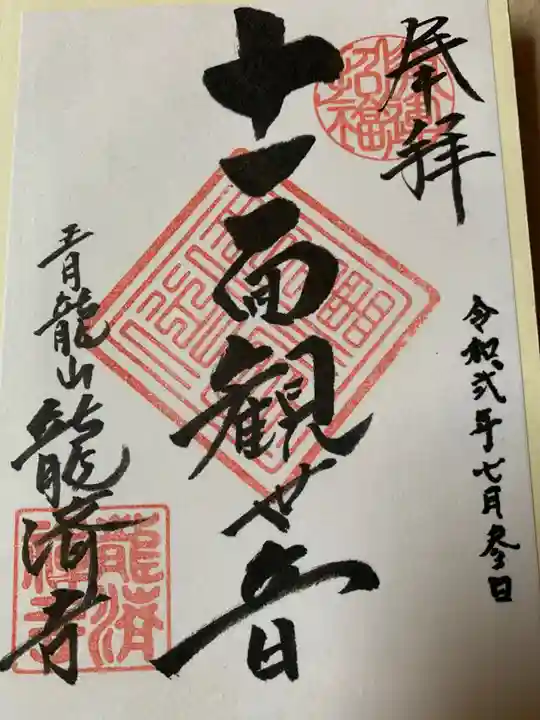 奉拝
令和弐年七月参日
十一面観世音
青龍山龍済寺
龍済禅寺